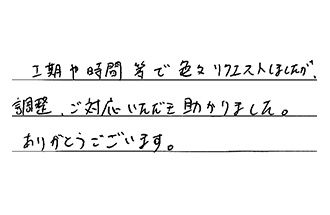 工期や時間等で色々リクエストしましたが、
調整、ご対応いただき助かりました。
ありがとうございます。